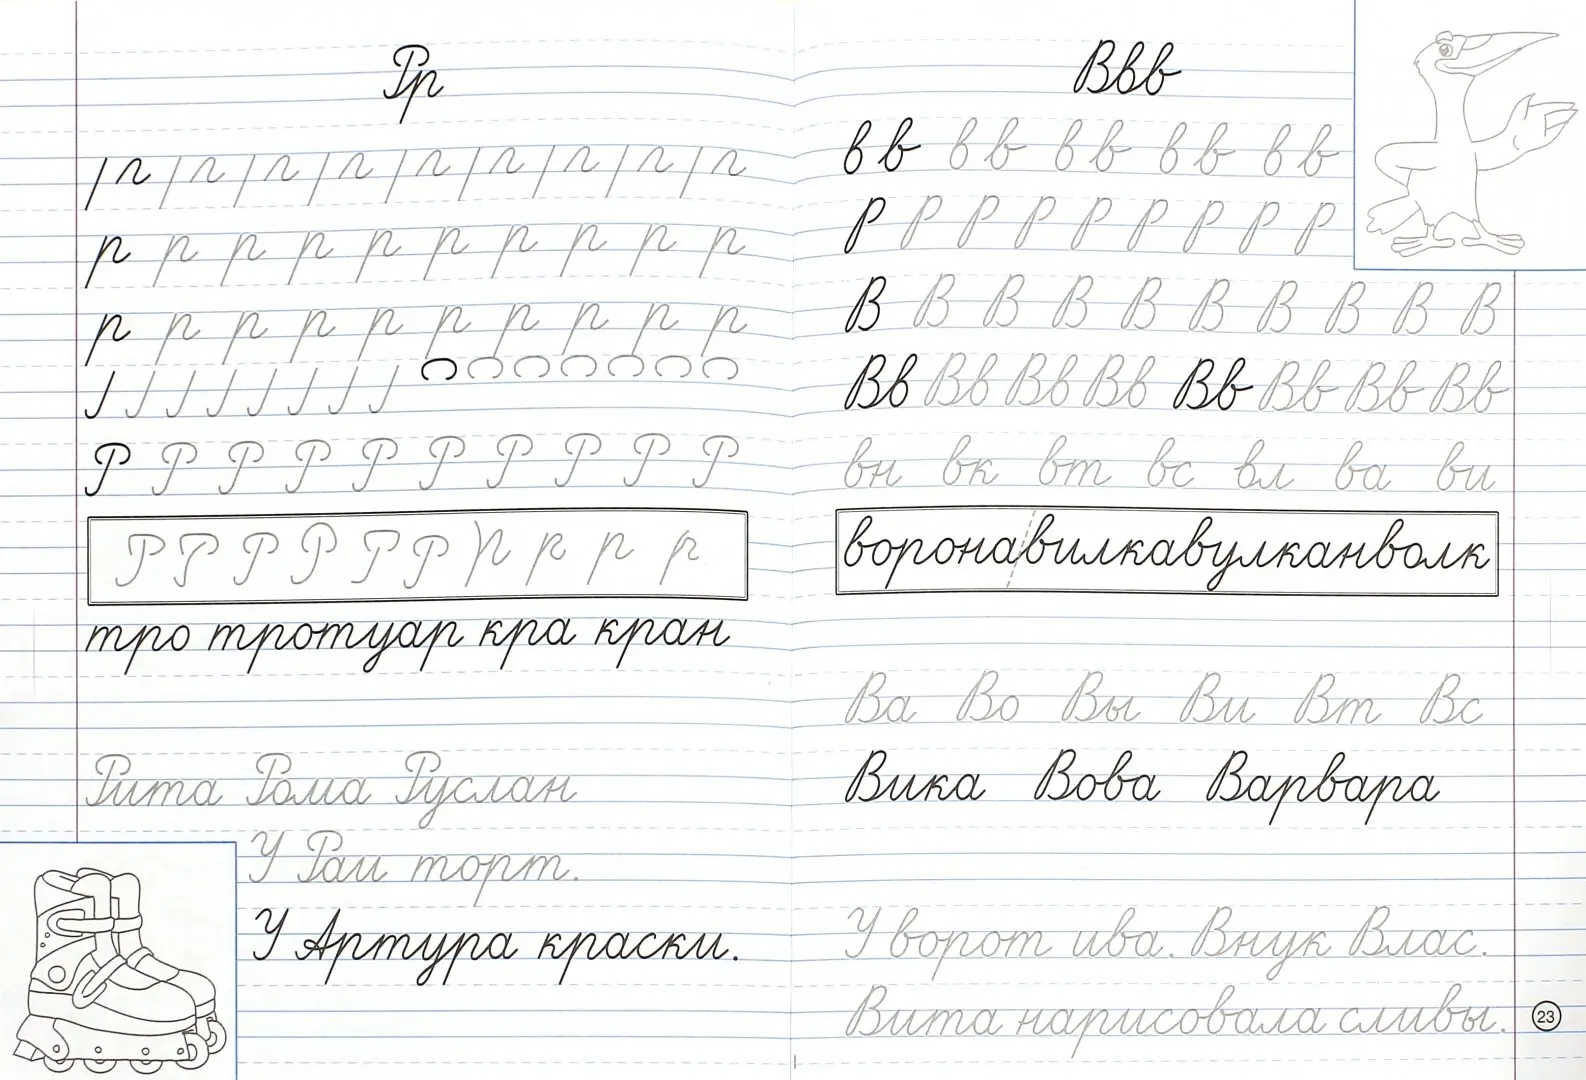 Рр
р р р р р р р р р р
р р р р р р р р р р
Р Р Р Р Р Р Р Р Р Р
Р Р Р Р Р Р р р р р
тро тротуар кра кран
Рита Рома Руслан
У Раи торт.
У Артура краски.
Ввв
в в в в в в в в в в
р р р р р р р р р
В В В В В В В В В В
Вв Вв Вв Вв Вв Вв Вв Вв
вн вк вт вс вл ва ви
воронавилкавулканволк
Ва Во Вы Ви Вт Вс
Вика Вова Варвара
У ворот ива. Внук Влас.
Вита нарисовала сливы.
23